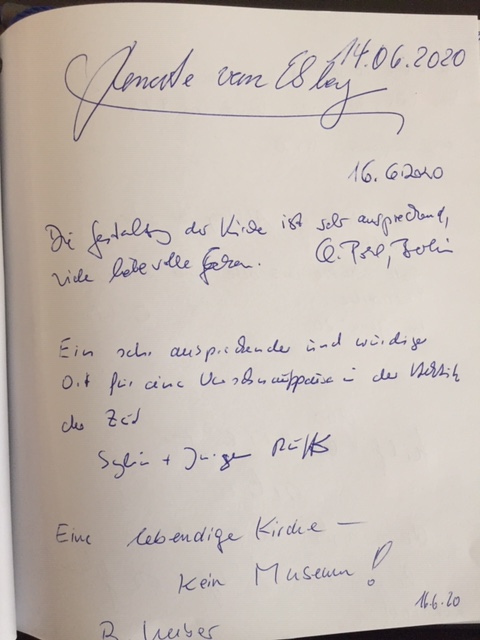 14.06.2020
Renate van
16.6.2020
Die Gestaltung der Kirche ist sehr ansprechend,
viele liebevolle Berlin
Ein sehr ansprechender und würdiger
Ort für eine Verschnaufpause in der Hektik
der Zeit
Sylvia + Jürgen
Eine lebendige Kirche –
kein Museum!
16.6.20
B.